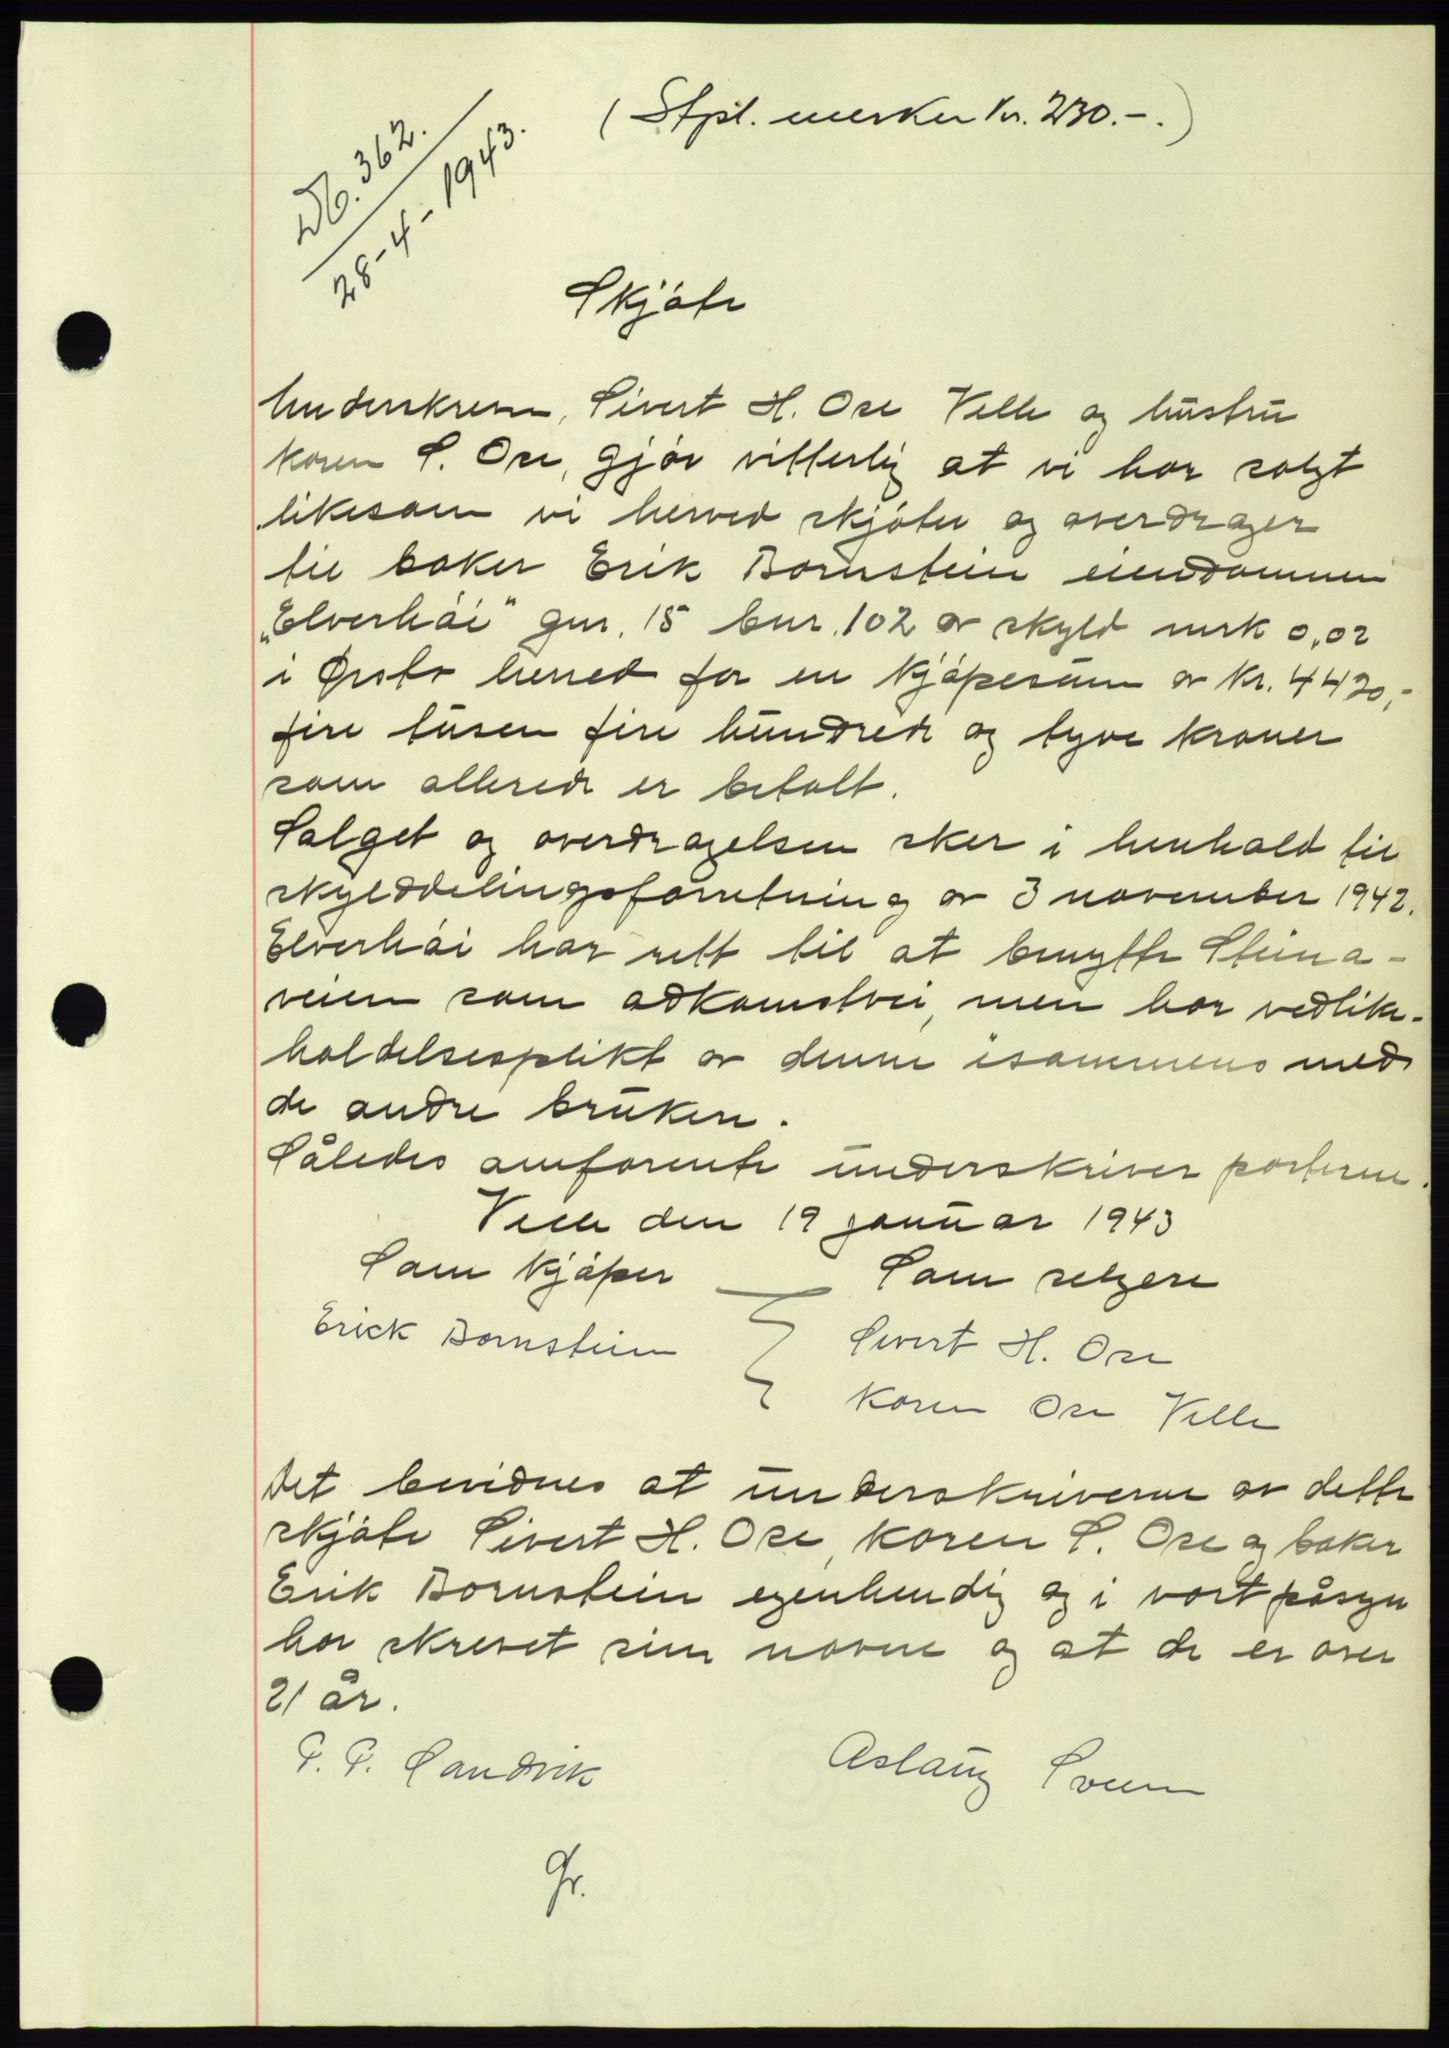 (Stpl. merker kr. 230.-.)
Db. 362.
28-4-1943.
Skjøte
Underskrevne, Sivert H. Ose Velle og hustru
Karen S. Ose, gjør vitterlig at vi har solgt
likesom vi herved skjøter og overdrager
til baker Erik Bornstein eiendommen
„Elverhøi" gnr. 15 bnr. 102 av skyld mrk 0,02
i Ørsta herred for en kjøpesum av kr. 4420,-
fire tusen fire hundrede og tyve kroner
som allerede er betalt.
Salget og overdragelsen sker i henhold til
skylddelingsforretning av 3 november 1942.
Elverhøi har rett til at benytte Steina-
veien som adkomstvei, men har vedlike-
holdelsesplikt av denne isammens med
de andre brukere.
Således omforente underskriver partene.
Velle den 19 januar 1943
Som kjøper Som selgere
Erick Bornstein Sivert H. Ose
Karen Ose Velle
Det bevidnes at underskriverne av dette
skjøte Sivert H. Ose, Karen S. Ose og baker
Erik Bornstein egenhendig og i vort påsyn
har skrevet sine navne og at de er over
21 år.
P. P. Sandvik Aslaug Sveen
Gr.